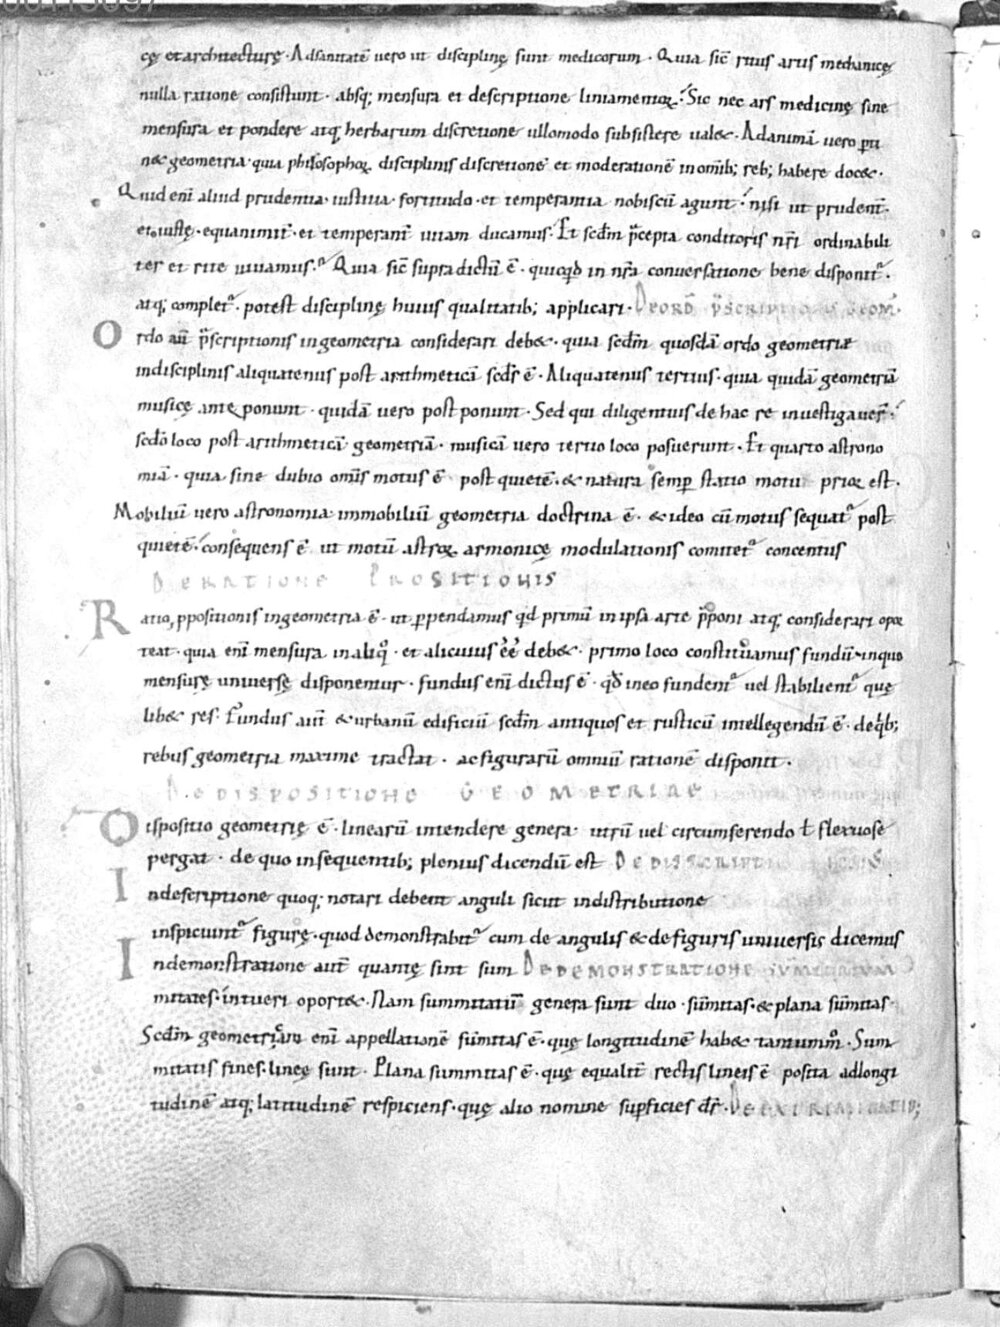 cę et architecturę · Ad sanitatē uero ut disciplinę sunt medicorum · Quia sic̄ rtius artis mechanicę
nulla ratione consistunt · absq; mensura et descriptione liniamentoꝝ · Sic nec ars medicinę sine
mensura et pondere atq; herbarum discretione ullomodo subsistere ual& · Ad animā uero ꝑti
n& geometria · quia philosophoꝝ disciplinis discretionē et moderationē in omīb; reb; habere doc& ·
Quid enī aliud prudentia · iustitia · fortitudo · et temperantia nobiscū agunt · nisi ut prudent̄ ·
et iustę · equanimit̄ · et temperant̄ uitam ducamus · Et scdm̄ p̄cepta conditoris nr̄i ordinabili
ter et rite uiuamus · Quia sic̄ supradictū ē · quicqd̄ in nr̄a conuersatione bene disponit᷑ ·
atq; complet᷑ · potest disciplinę huius qualitatib; applicari · De ord̄ p̄scriptionis geom̄ ·
Ordo aū p̄scriptionis in geometria considerari deb& · quia scdm̄ quosdā ordo geometriæ
in disciplinis aliquatenus post arithmeticā scds̄ ē · Aliquatenus tertius · quia quidā geometriā
musicę anteponunt · quidā uero postponunt · Sed qui diligentius de hac re inuestigauer̄ ·
scdō loco post arithmeticā geometriā · musicā uero tertio loco posuerunt · Et quarto astrono
miā · quia sine dubio omīs motus ē post quietē · & natura semꝑ statio motu prioꝝ est ·
Mobiliū uero astronomia · immobiliū geometria doctrina ē · & ideo cū motus sequat᷑ post
quietē · consequens ē ut motū astroꝝ armonicę modulationis comitet᷑ concentus
DE RATIONE PROSITIONIS
Ratio ꝓpositionis in geometria ē · ut ꝑpendamus qd̄ primū in ipsa arte p̄poni atq; considerari opor
teat · quia enī mensura in aliqͦ · et alicuius ee̅ deb& · primo loco constituamus fundū · in quo
mensurę uniuersę disponentur · fundus enī dictus ē · qd̄ in eo fundent᷑ uel stabilient᷑ quę
lib& res · Fundus aū & urbanū edificiū scdm̄ antiquos et rusticū intellegendū ē · de qͥb;
rebus geometria maxime tractat · ac figurarū omniū rationē disponit ·
DE DISPOSITIONE GEOMETRIAE
Dispositio geometrię ē · linearū intendere genera · utrū uel circumferendo ł flexuose
pergat · de quo in sequentib; plenius dicendū est DE DISSCRIPTIONIS
In descriptione quoq; notari debent anguli sicut in distributione
inspiciunt᷑ figurę · quod demonstrabit᷑ cum de angulis & de figuris uniuersis dicemus
In demonstratione aut̄ quantę sint sum DE DEMONSTRATIONE
mitates · intueri oport& · Nam summitatū genera sunt duo · sūmitas · & plana sūmitas ·
Scdm̄ geometricam enī appellationē sūmitas ē · quę longitudinē hab& tantummͦ · Sum
mitatis fines · lineę sunt · Plana summitas ē · quę equalit̄ rectis lineis ē posita ad longi
tudinē atq; latitudinē respiciens · quę alio nomine supficies dr̄ ·